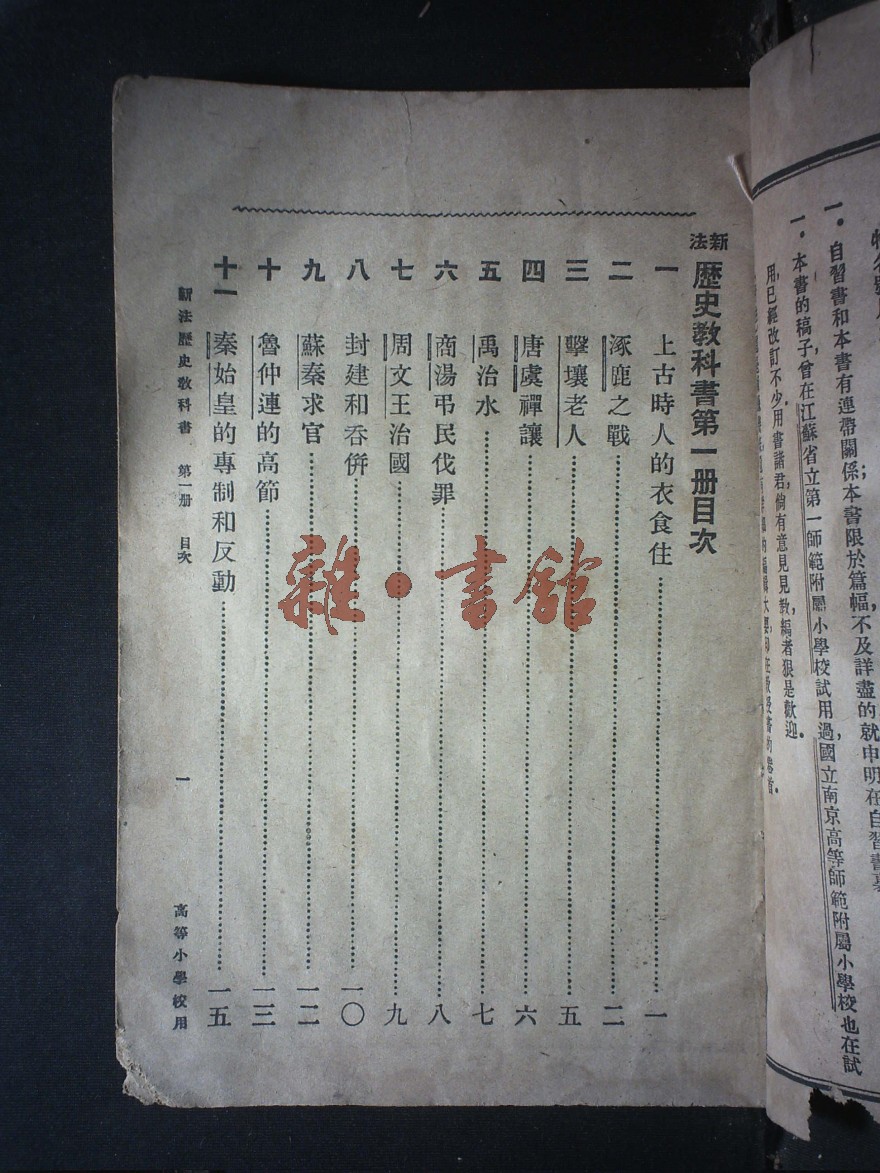 一。自習書和本書有連帶關係；本書限於篇幅，不及詳盡的就申明在自習書裏
一。本書的稿子，曾在江蘇省立第一師範附屬小學校試用過，國立南京高等師範附屬小學校也在試
用，已經改訂不少。用書諸君，倘有意見見教，編者狠是歡迎。
新法歷史教科書第一册目次
一 上古時人的衣食住……一
二 涿鹿之戰……二
三 擊壤老人……五
四 唐虞禪讓……六
五 禹治水……七
六 商湯弔民伐罪……八
七 周文王治國……九
八 封建和吞併……一〇
九 蘇秦求官……一二
十 魯仲連的高節……一三
十一 秦始皇的專制和反動……一五
新法歷史教科書 第一册 目次 一 高等小學校用
雜·書館